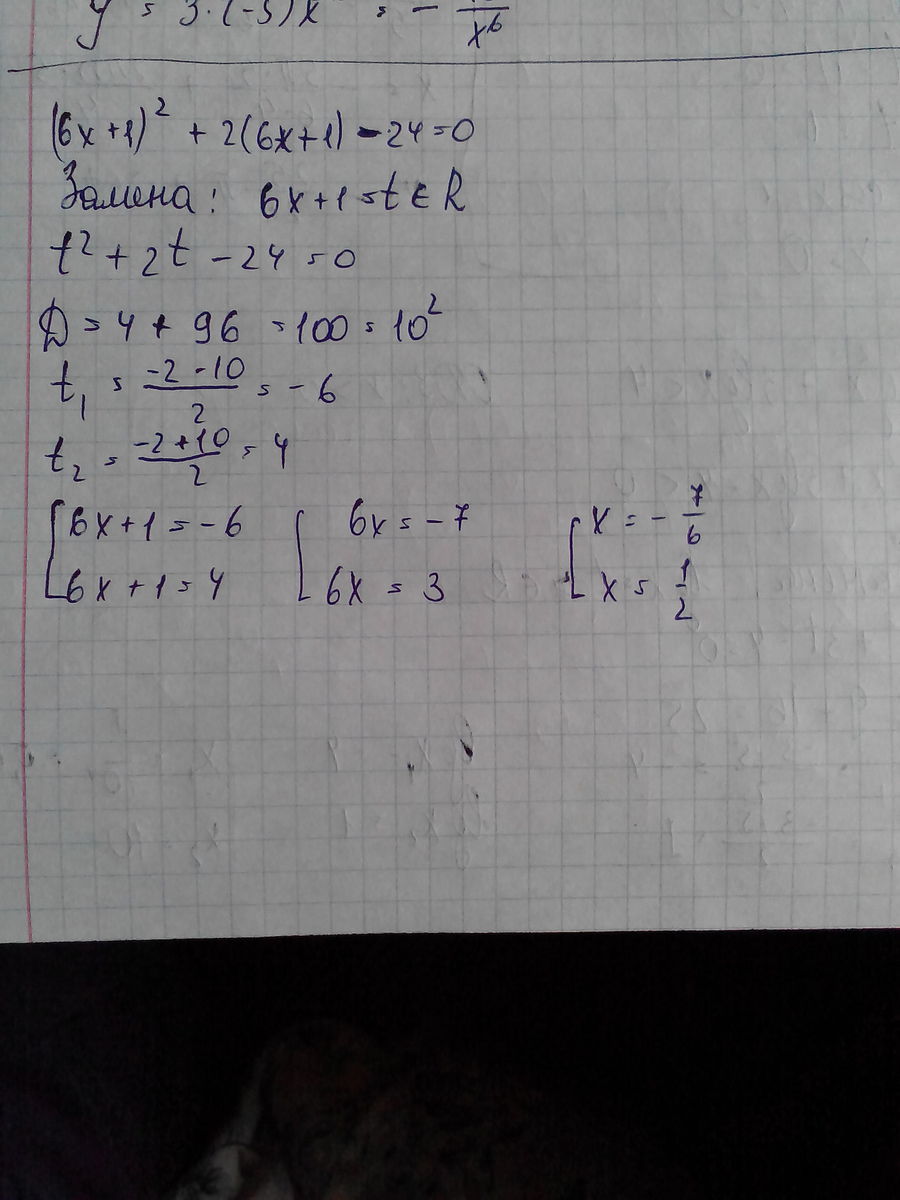 (6x+1)² + 2(6x+1) - 24 = 0
Замена: 6x+1 = t ∈ R
t² + 2t - 24 = 0
D = 4 + 96 = 100 = 10²
t₁ = (-2-10)/2 = -6
t₂ = (-2+10)/2 = 4
[6x+1 = -6 [6x = -7 [x = -7/6
[6x+1 = 4 [6x = 3 [x = 1/2